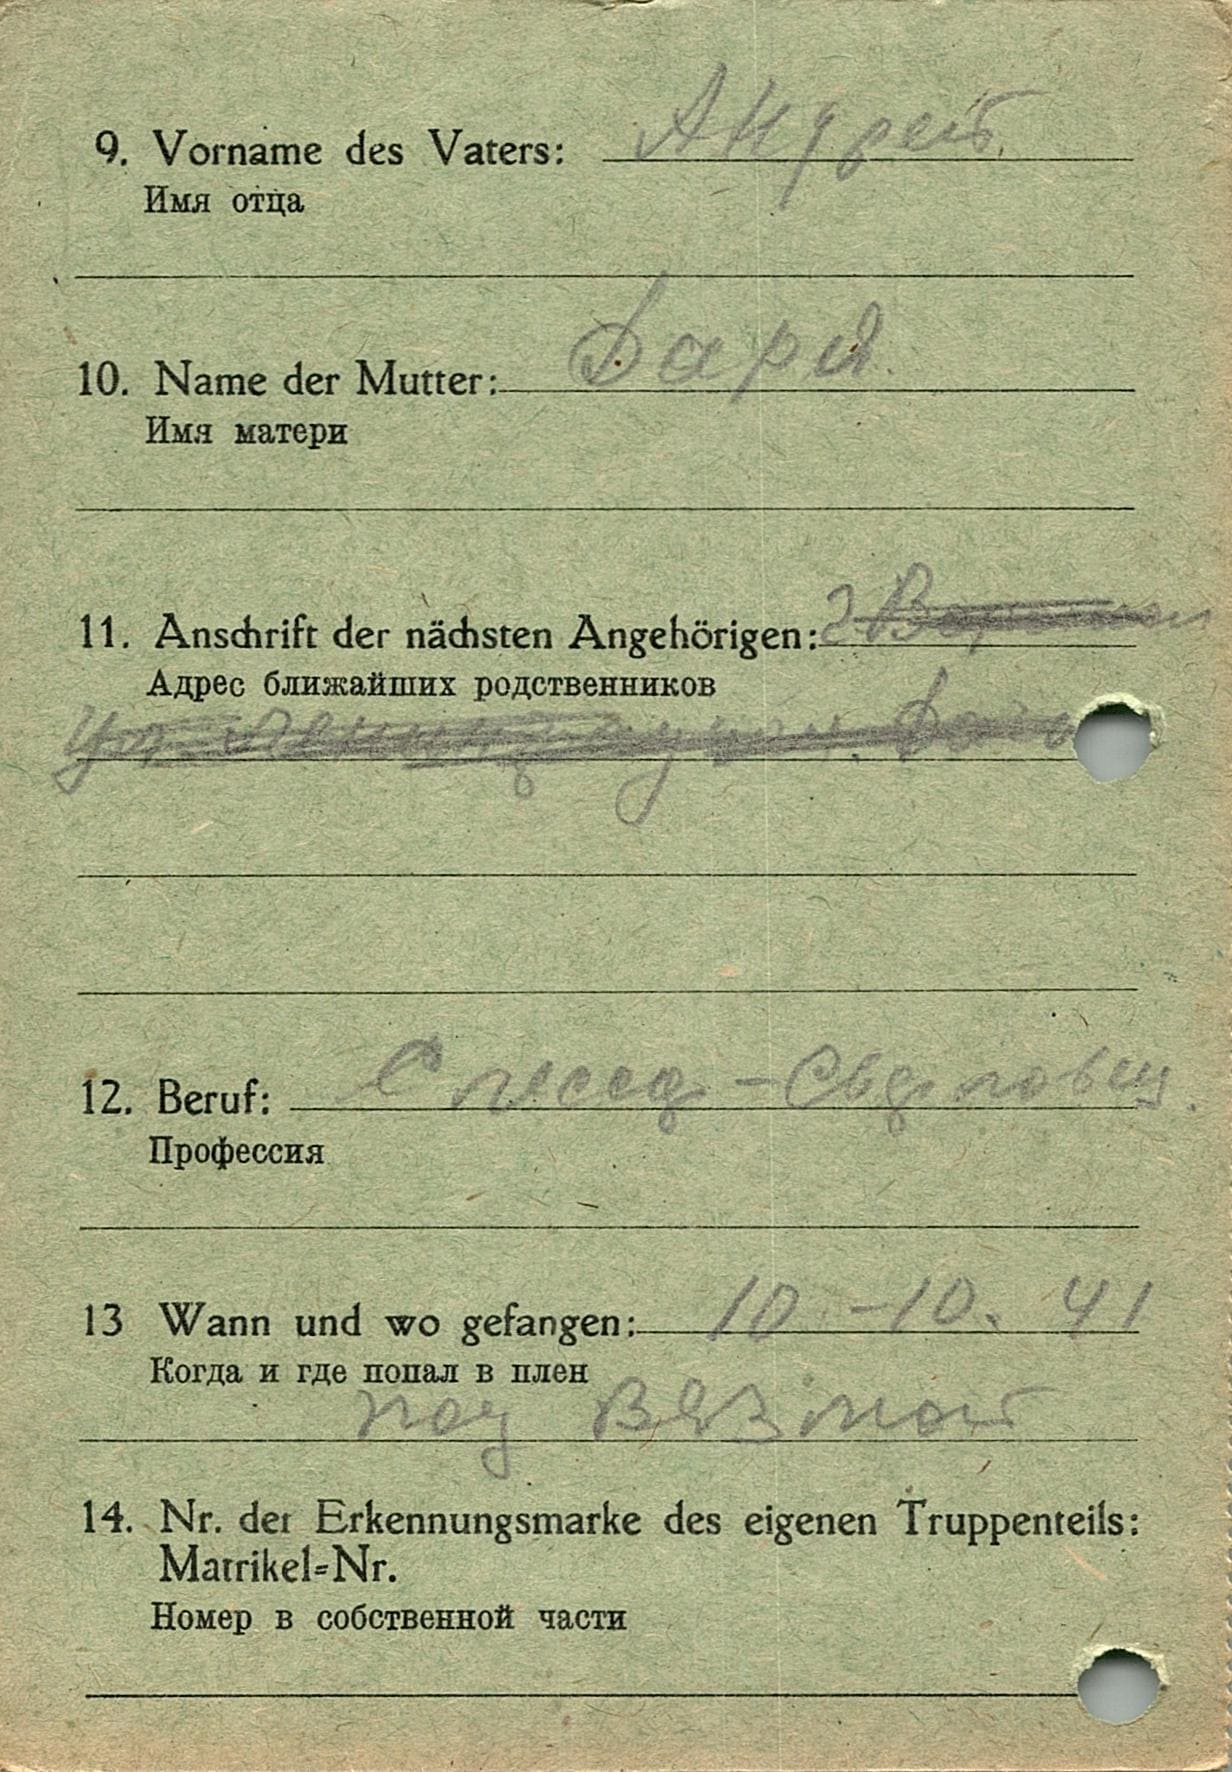 9. Vorname des Vaters: Андрей
Имя отца
10. Name der Mutter: Даря
Имя матери
11. Anschrift der nächsten Angehörigen: г
Адрес ближайших родственников
ул.
12. Beruf: Слесар -
Профессия
13 Wann und wo gefangen: 10 -10. 41
Когда и где попал в плен
под Вязмой
14. Nr. der Erkennungsmarke des eigenen Truppenteils:
Matrikel=Nr.
Номер в собственной части